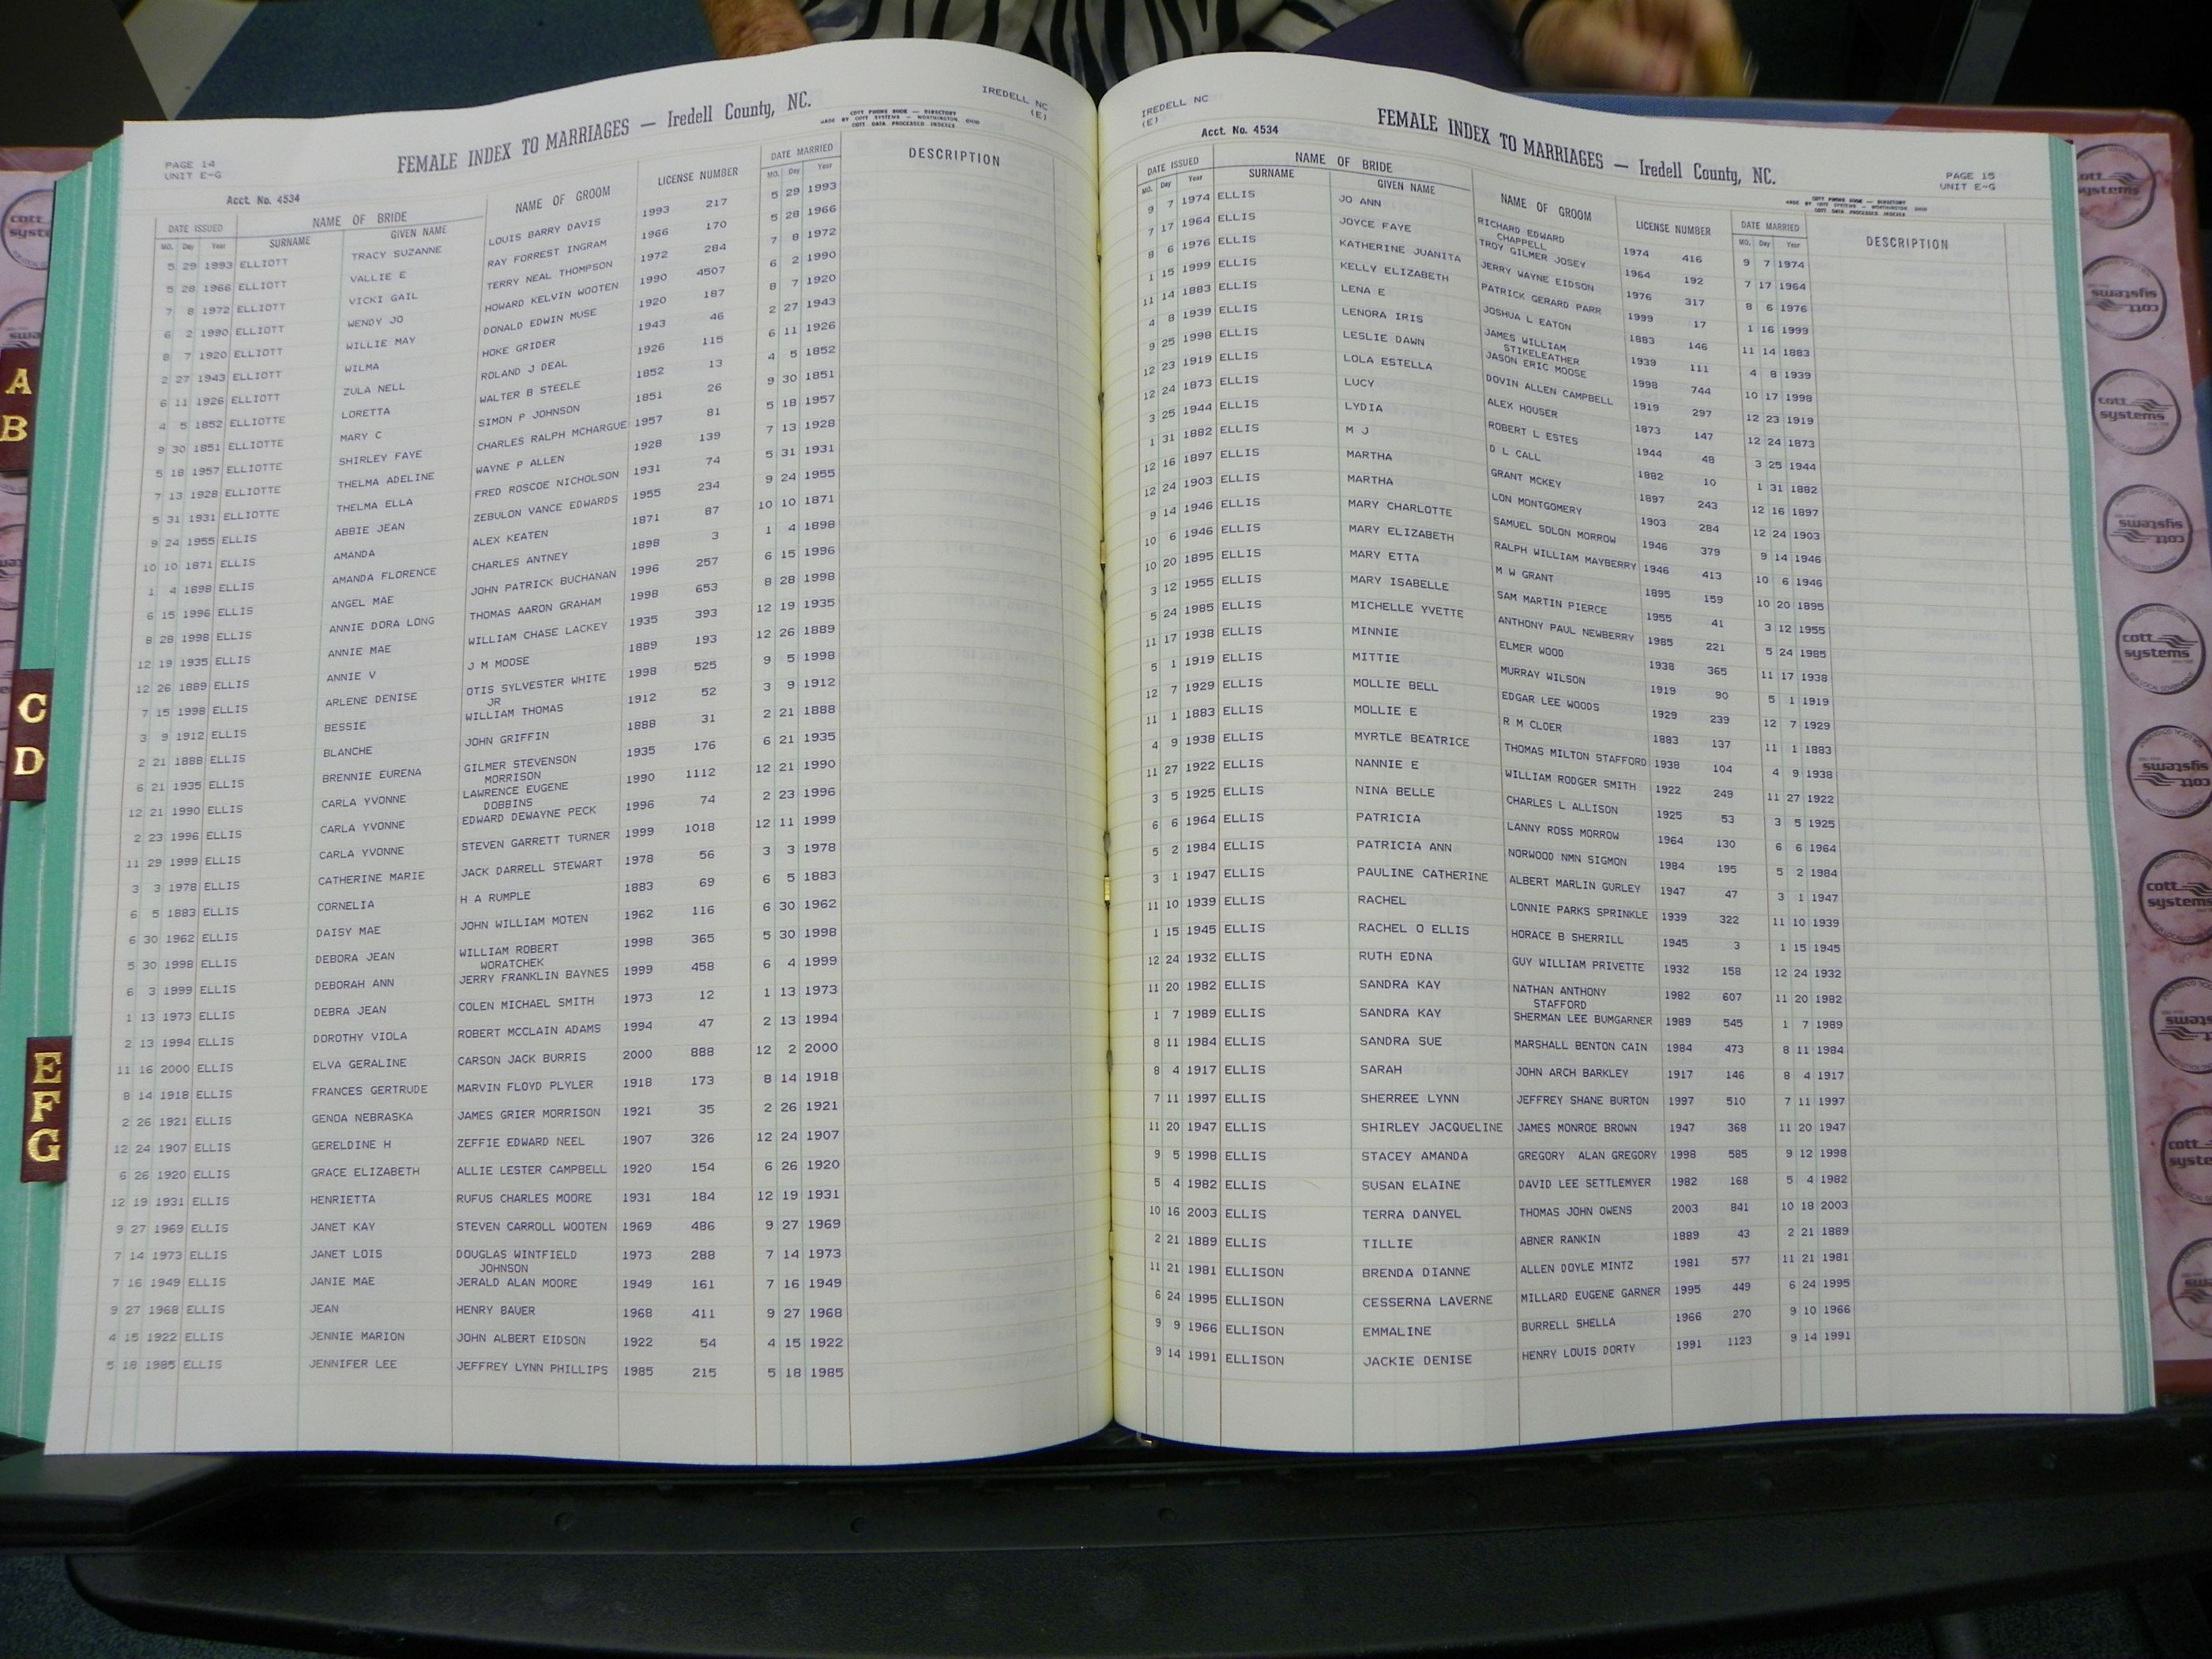 IREDELL NC
(E)
FEMALE INDEX TO MARRIAGES — Iredell County, NC.
COTT PHONE BOOK — DIRECTORY
MADE BY COTT SYSTEMS — WORTHINGTON, OHIO
COTT DATA PROCESSED INDEXES
PAGE 14
UNIT E-G
Acct. No. 4534
DATE ISSUED NAME OF BRIDE NAME OF GROOM LICENSE NUMBER DATE MARRIED DESCRIPTION
MO. Day Year SURNAME GIVEN NAME MO. Day Year
5 29 1993 ELLIOTT TRACY SUZANNE LOUIS BARRY DAVIS 1993 217 5 29 1993
5 28 1966 ELLIOTT VALLIE E RAY FORREST INGRAM 1966 170 5 28 1966
7 8 1972 ELLIOTT VICKI GAIL TERRY NEAL THOMPSON 1972 284 7 8 1972
6 2 1990 ELLIOTT WENDY JO HOWARD KELVIN WOOTEN 1990 4507 6 2 1990
8 7 1920 ELLIOTT WILLIE MAY DONALD EDWIN MUSE 1920 187 8 7 1920
2 27 1943 ELLIOTT WILMA HOKE GRIDER 1943 46 2 27 1943
6 11 1926 ELLIOTT ZULA NELL ROLAND J DEAL 1926 115 6 11 1926
4 5 1852 ELLIOTTE LORETTA WALTER B STEELE 1852 13 4 5 1852
9 30 1851 ELLIOTTE MARY C SIMON P JOHNSON 1851 26 9 30 1851
5 18 1957 ELLIOTTE SHIRLEY FAYE CHARLES RALPH MCHARGUE 1957 81 5 18 1957
7 13 1928 ELLIOTTE THELMA ADELINE WAYNE P ALLEN 1928 139 7 13 1928
5 31 1931 ELLIOTTE THELMA ELLA FRED ROSCOE NICHOLSON 1931 74 5 31 1931
9 24 1955 ELLIS ABBIE JEAN ZEBULON VANCE EDWARDS 1955 234 9 24 1955
10 10 1871 ELLIS AMANDA ALEX KEATEN 1871 87 10 10 1871
1 4 1898 ELLIS AMANDA FLORENCE CHARLES ANTNEY 1898 3 1 4 1898
6 15 1996 ELLIS ANGEL MAE JOHN PATRICK BUCHANAN 1996 257 6 15 1996
8 28 1998 ELLIS ANNIE DORA LONG THOMAS AARON GRAHAM 1998 653 8 28 1998
12 19 1935 ELLIS ANNIE MAE WILLIAM CHASE LACKEY 1935 393 12 19 1935
12 26 1889 ELLIS ANNIE V J M MOOSE 1889 193 12 26 1889
7 15 1998 ELLIS ARLENE DENISE OTIS SYLVESTER WHITE 1998 525 9 5 1998
JR
3 9 1912 ELLIS BESSIE WILLIAM THOMAS 1912 52 3 9 1912
2 21 1888 ELLIS BLANCHE JOHN GRIFFIN 1888 31 2 21 1888
6 21 1935 ELLIS BRENNIE EURENA GILMER STEVENSON 1935 176 6 21 1935
MORRISON
12 21 1990 ELLIS CARLA YVONNE LAWRENCE EUGENE 1990 1112 12 21 1990
DOBBINS
2 23 1996 ELLIS CARLA YVONNE EDWARD DEWAYNE PECK 1996 74 2 23 1996
11 29 1999 ELLIS CARLA YVONNE STEVEN GARRETT TURNER 1999 1018 12 11 1999
3 3 1978 ELLIS CATHERINE MARIE JACK DARRELL STEWART 1978 56 3 3 1978
6 5 1883 ELLIS CORNELIA H A RUMPLE 1883 69 6 5 1883
6 30 1962 ELLIS DAISY MAE JOHN WILLIAM MOTEN 1962 116 6 30 1962
5 30 1998 ELLIS DEBORA JEAN WILLIAM ROBERT 1998 365 5 30 1998
WORATCHEK
6 3 1999 ELLIS DEBORAH ANN JERRY FRANKLIN BAYNES 1999 458 6 4 1999
1 13 1973 ELLIS DEBRA JEAN COLEN MICHAEL SMITH 1973 12 1 13 1973
2 13 1994 ELLIS DOROTHY VIOLA ROBERT MCCLAIN ADAMS 1994 47 2 13 1994
11 16 2000 ELLIS ELVA GERALINE CARSON JACK BURRIS 2000 888 12 2 2000
8 14 1918 ELLIS FRANCES GERTRUDE MARVIN FLOYD PLYLER 1918 173 8 14 1918
2 26 1921 ELLIS GENOA NEBRASKA JAMES GRIER MORRISON 1921 35 2 26 1921
12 24 1907 ELLIS GERELDINE H ZEFFIE EDWARD NEEL 1907 326 12 24 1907
6 26 1920 ELLIS GRACE ELIZABETH ALLIE LESTER CAMPBELL 1920 154 6 26 1920
12 19 1931 ELLIS HENRIETTA RUFUS CHARLES MOORE 1931 184 12 19 1931
9 27 1969 ELLIS JANET KAY STEVEN CARROLL WOOTEN 1969 486 9 27 1969
7 14 1973 ELLIS JANET LOIS DOUGLAS WINTFIELD 1973 288 7 14 1973
JOHNSON
7 16 1949 ELLIS JANIE MAE JERALD ALAN MOORE 1949 161 7 16 1949
9 27 1968 ELLIS JEAN HENRY BAUER 1968 411 9 27 1968
4 15 1922 ELLIS JENNIE MARION JOHN ALBERT EIDSON 1922 54 4 15 1922
5 18 1985 ELLIS JENNIFER LEE JEFFREY LYNN PHILLIPS 1985 215 5 18 1985
IREDELL NC
(E)
Acct. No. 4534
FEMALE INDEX TO MARRIAGES — Iredell County, NC.
PAGE 15
UNIT E-G
COTT PHONE BOOK — DIRECTORY
MADE BY COTT SYSTEMS — WORTHINGTON, OHIO
COTT DATA PROCESSED INDEXES
DATE ISSUED NAME OF BRIDE NAME OF GROOM LICENSE NUMBER DATE MARRIED DESCRIPTION
MO. Day Year SURNAME GIVEN NAME MO. Day Year
9 7 1974 ELLIS JO ANN RICHARD EDWARD 1974 416 9 7 1974
CHAPPELL
7 17 1964 ELLIS JOYCE FAYE TROY GILMER JOSEY 1964 192 7 17 1964
8 6 1976 ELLIS KATHERINE JUANITA JERRY WAYNE EIDSON 1976 317 8 6 1976
1 15 1999 ELLIS KELLY ELIZABETH PATRICK GERARD PARR 1999 17 1 16 1999
11 14 1883 ELLIS LENA E JOSHUA L EATON 1883 146 11 14 1883
4 8 1939 ELLIS LENORA IRIS JAMES WILLIAM 1939 111 4 8 1939
STIKELEATHER
9 25 1998 ELLIS LESLIE DAWN JASON ERIC MOOSE 1998 744 10 17 1998
12 23 1919 ELLIS LOLA ESTELLA DOVIN ALLEN CAMPBELL 1919 297 12 23 1919
12 24 1873 ELLIS LUCY ALEX HOUSER 1873 147 12 24 1873
3 25 1944 ELLIS LYDIA ROBERT L ESTES 1944 48 3 25 1944
1 31 1882 ELLIS M J D L CALL 1882 10 1 31 1882
12 16 1897 ELLIS MARTHA GRANT MCKEY 1897 243 12 16 1897
12 24 1903 ELLIS MARTHA LON MONTGOMERY 1903 284 12 24 1903
9 14 1946 ELLIS MARY CHARLOTTE SAMUEL SOLON MORROW 1946 379 9 14 1946
10 6 1946 ELLIS MARY ELIZABETH RALPH WILLIAM MAYBERRY 1946 413 10 6 1946
10 20 1895 ELLIS MARY ETTA M W GRANT 1895 159 10 20 1895
3 12 1955 ELLIS MARY ISABELLE SAM MARTIN PIERCE 1955 41 3 12 1955
5 24 1985 ELLIS MICHELLE YVETTE ANTHONY PAUL NEWBERRY 1985 221 5 24 1985
11 17 1938 ELLIS MINNIE ELMER WOOD 1938 365 11 17 1938
5 1 1919 ELLIS MITTIE MURRAY WILSON 1919 90 5 1 1919
12 7 1929 ELLIS MOLLIE BELL EDGAR LEE WOODS 1929 239 12 7 1929
11 1 1883 ELLIS MOLLIE E R M CLOER 1883 137 11 1 1883
4 9 1938 ELLIS MYRTLE BEATRICE THOMAS MILTON STAFFORD 1938 104 4 9 1938
11 27 1922 ELLIS NANNIE E WILLIAM RODGER SMITH 1922 249 11 27 1922
3 5 1925 ELLIS NINA BELLE CHARLES L ALLISON 1925 53 3 5 1925
6 6 1964 ELLIS PATRICIA LANNY ROSS MORROW 1964 130 6 6 1964
5 2 1984 ELLIS PATRICIA ANN NORWOOD NMN SIGMON 1984 195 5 2 1984
3 1 1947 ELLIS PAULINE CATHERINE ALBERT MARLIN GURLEY 1947 47 3 1 1947
11 10 1939 ELLIS RACHEL LONNIE PARKS SPRINKLE 1939 322 11 10 1939
1 15 1945 ELLIS RACHEL O ELLIS HORACE B SHERRILL 1945 3 1 15 1945
12 24 1932 ELLIS RUTH EDNA GUY WILLIAM PRIVETTE 1932 158 12 24 1932
11 20 1982 ELLIS SANDRA KAY NATHAN ANTHONY 1982 607 11 20 1982
STAFFORD
1 7 1989 ELLIS SANDRA KAY SHERMAN LEE BUMGARNER 1989 545 1 7 1989
8 11 1984 ELLIS SANDRA SUE MARSHALL BENTON CAIN 1984 473 8 11 1984
8 4 1917 ELLIS SARAH JOHN ARCH BARKLEY 1917 146 8 4 1917
7 11 1997 ELLIS SHERREE LYNN JEFFREY SHANE BURTON 1997 510 7 11 1997
11 20 1947 ELLIS SHIRLEY JACQUELINE JAMES MONROE BROWN 1947 368 11 20 1947
9 5 1998 ELLIS STACEY AMANDA GREGORY ALAN GREGORY 1998 585 9 12 1998
5 4 1982 ELLIS SUSAN ELAINE DAVID LEE SETTLEMYER 1982 168 5 4 1982
10 16 2003 ELLIS TERRA DANYEL THOMAS JOHN OWENS 2003 841 10 18 2003
2 21 1889 ELLIS TILLIE ABNER RANKIN 1889 43 2 21 1889
11 21 1981 ELLISON BRENDA DIANNE ALLEN DOYLE MINTZ 1981 577 11 21 1981
6 24 1995 ELLISON CESSERNA LAVERNE MILLARD EUGENE GARNER 1995 449 6 24 1995
9 9 1966 ELLISON EMMALINE BURRELL SHELLA 1966 270 9 10 1966
9 14 1991 ELLISON JACKIE DENISE HENRY LOUIS DORTY 1991 1123 9 14 1991
A
B
C
D
E
F
G
cott
systems
cott
systems
cott
systems
cott
systems
cott
systems
cott
systems
cott
systems